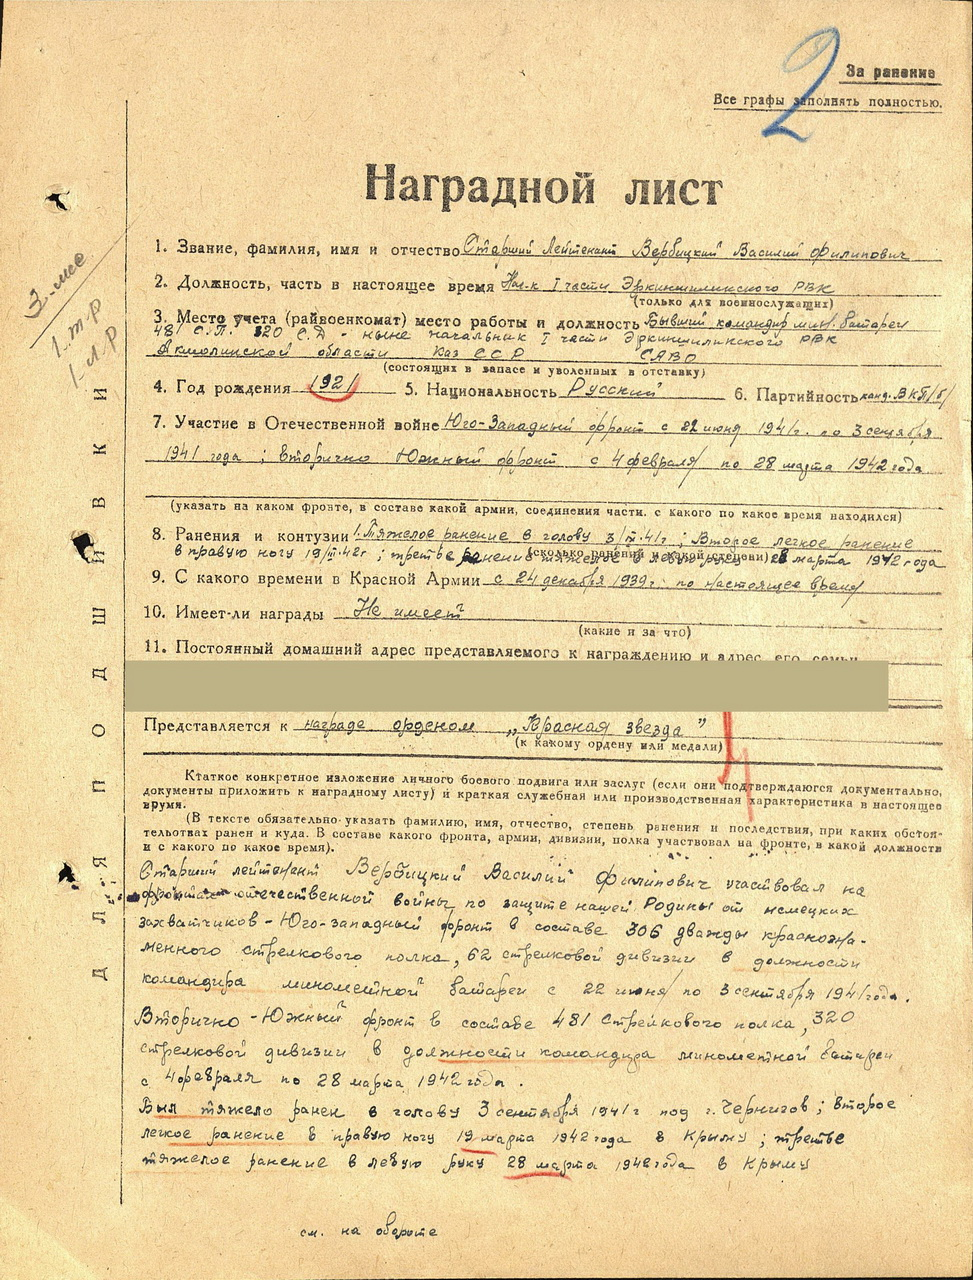 2
За ранение
Все графы заполнять полностью.
Наградной лист
3-мя
1.т.р
1.л.р
ДЛЯ ПОДШИВКИ
1. Звание, фамилия, имя и отчество Старший Лейтенант Вербицкий Василий Филипович
2. Должность, часть в настоящее время Нач-к I части Эркиншиликского РВК
(только для военнослужащих)
3. Место учета (райвоенкомат) место работы и должность Бывший командир мин. батареи
481 С.П. 320 С.Д - ныне начальник I части Эркиншиликского РВК
Акмолинской области Каз ССР САВО
(состоящих в запасе и уволенных в отставку)
4. Год рождения 1921 5. Национальность Русский 6. Партийность канд. ВКП/б/
7. Участие в Отечественной войне Юго-Западный фронт с 22 июня 1941г. по 3 сентября
1941 года; вторично Южный фронт с 4 февраля по 28 марта 1942 года
(указать на каком фронте, в составе какой армии, соединения части. с какого по какое время находился)
8. Ранения и контузии 1. Тяжелое ранение в голову 3/IX-41г; Второе легкое ранение
в правую ногу 19/III-42г; третье ранение тяжелое в левую руку 28 марта 1942 года
(сколько ранений и какой степени)
9. С какого времени в Красной Армии с 24 декабря 1939г. по настоящее время
10. Имеет-ли награды Не имеет
(какие и за что)
11. Постоянный домашний адрес представляемого к награждению и адрес его семьи
Представляется к награде орденом „Красная звезда"
(к какому ордену или медали)
Краткое конкретное изложение личного боевого подвига или заслуг (если они подтверждаются документально,
документы приложить к наградному листу) и краткая служебная или производственная характеристика в настоящее
время.
(В тексте обязательно указать фамилию, имя, отчество, степень ранения и последствия, при каких обстоя-
тельствах ранен и куда. В составе какого фронта, армии, дивизии, полка участвовал на фронте, в какой должности
и с какого по какое время).
Старший лейтенант Вербицкий Василий Филипович участвовал на
фронтах отечественной войны по защите нашей Родины от немецких
захватчиков - Юго-западный фронт в составе 306 дважды краснозна-
менного стрелкового полка, 62 стрелковой дивизии в должности
командира минометной батареи с 22 июня по 3 сентября 1941 года.
Вторично - Южный фронт в составе 481 Стрелкового полка, 320
стрелковой дивизии в должности командира минометной батареи
с 4 февраля по 28 марта 1942 года.
Был тяжело ранен в голову 3 сентября 1941г под г. Чернигов; второе
легкое ранение в правую ногу 19 марта 1942 года в Крыму; третье
тяжелое ранение в левую руку 28 марта 1942 года в Крыму
см. на обороте